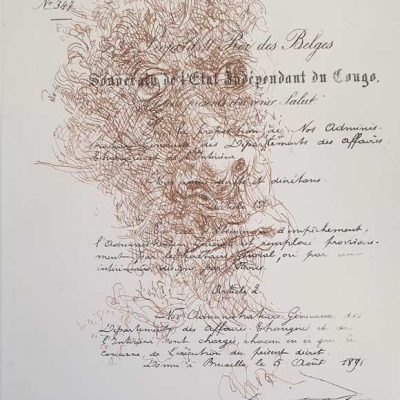 N° 347
Léopold II, Roi des Belges
Souverain de l'Etat Indépendant du Congo,
A tous présents et à venir, Salut:
la proposition de Nos Adminis-
Généraux des Départements des Affaires
Etrangères et de l'Intérieur
décrétons:
d'empêchement,
l'Administrateur Général est remplacé provisoire-
ment par le Secrétaire Général ou par un
intérimaire désigné par Nous.
Article 2.
Nos Administrateurs Généraux des
Départements des Affaires Etrangères et de
l'Intérieur sont chargés, chacun en ce qui le
concerne de l'exécution du présent décret.
Donné à Bruxelles, le 5 Août 1891